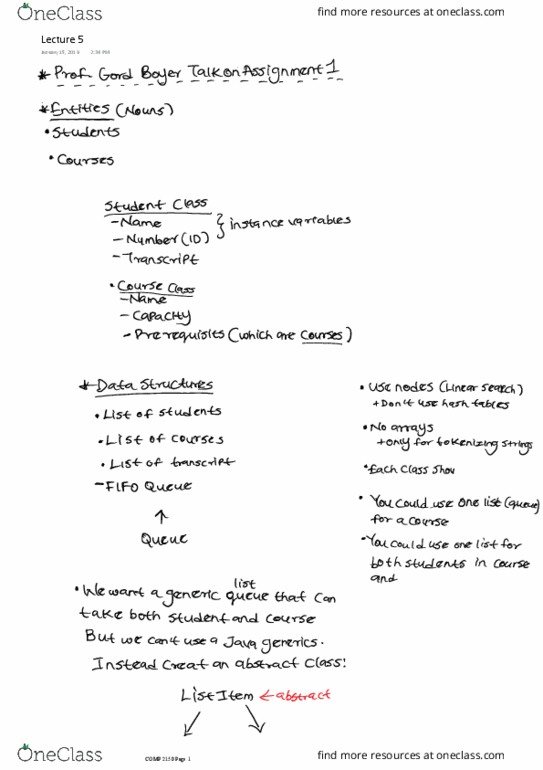 OneClass
find more resources at oneclass.com
Lecture 5
2:36 PM
* Prof. Gord Boyer Talk on Assignment 1
* Entities (Nouns)
• Students
• Courses
Student Class
- Name
- Number (ID)
} instance variables
- Transcript
• Course Class
- Name
- Capacity
- Prerequisites (which are courses)
* Data Structures
• List of students
• List of courses
• List of transcript
- FIFO Queue
↑
Queue
• Use nodes (Linear search)
+ Don't use hash tables
• No arrays
+ only for tokenizing strings
• Each Class Shou
• You could use one list (queue)
for a course
• You could use one list for
both students in course
and
list
• We want a generic queue that can
take both student and course
But we can't use a Java generics.
Instead Creat an abstract Class!
List Item ← abstract
OneClass
Page 1
find more resources at oneclass.com